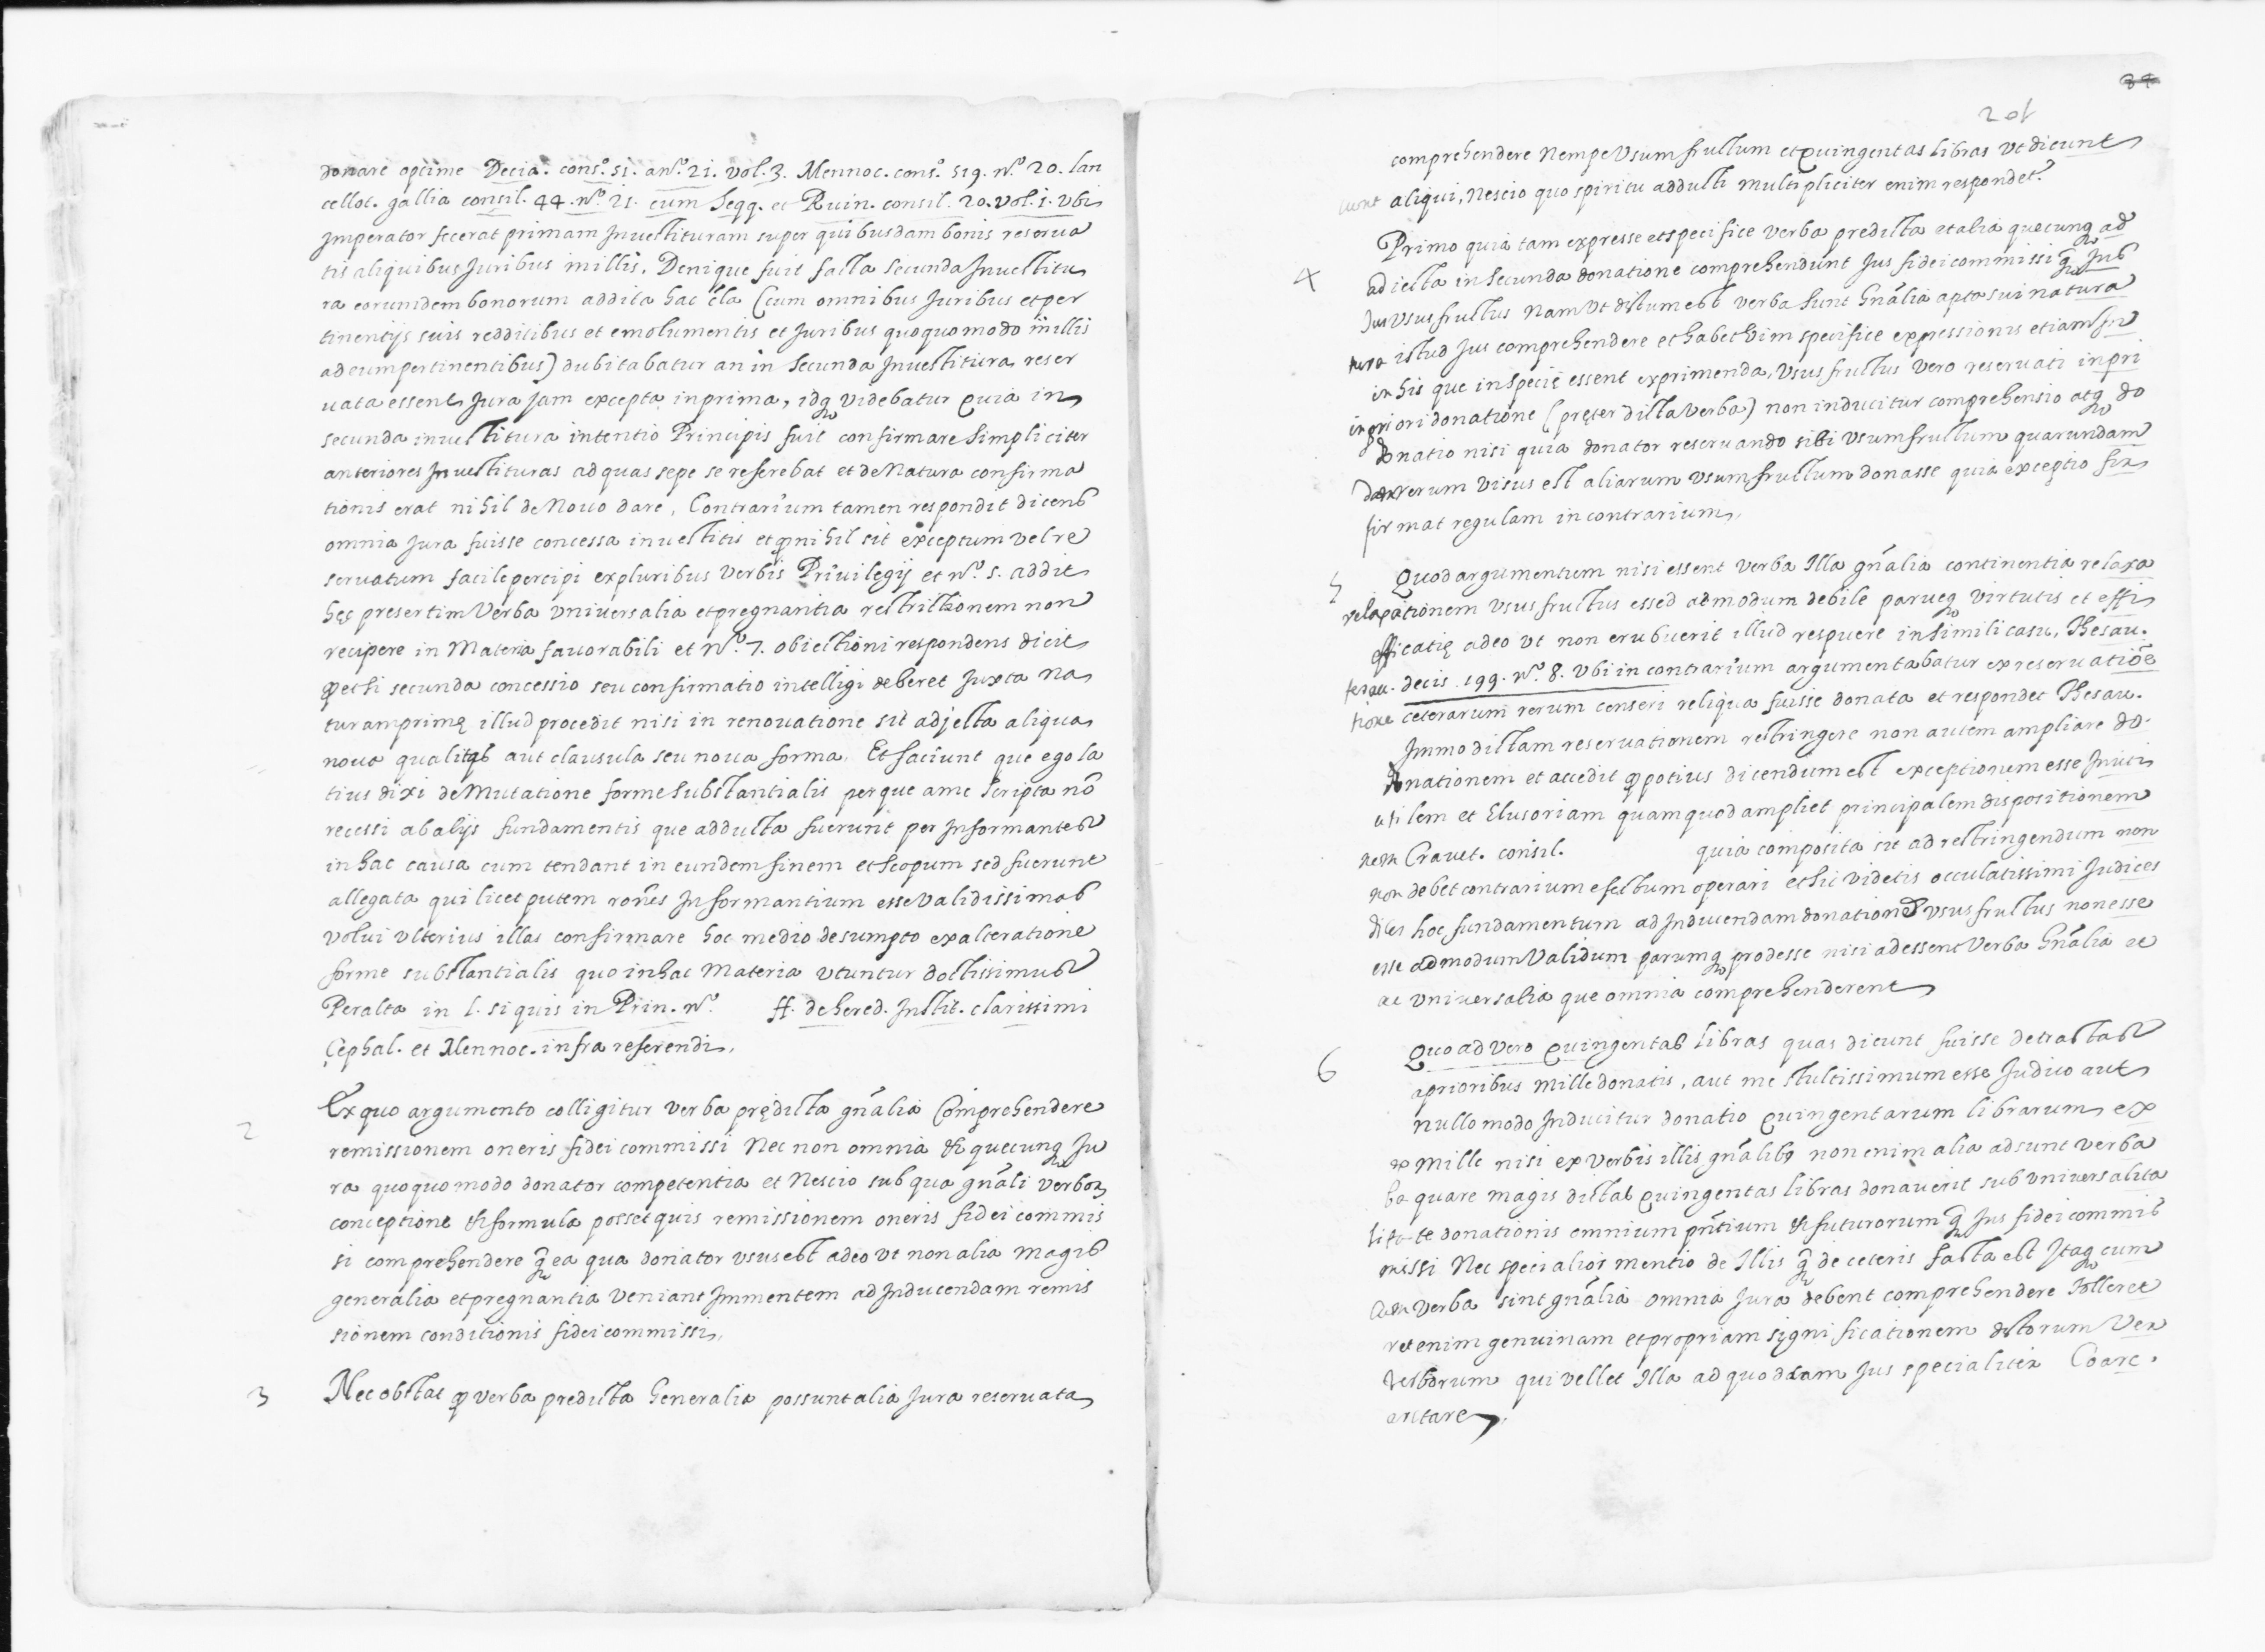 donare optime Decia. cons.º 51. a nº. 21. vol. 3. Mennoc. cons.º 519. nº. 20. lan
cellot. gallia consil. 44. nº. 21. cum seqq. et Ruin. consil. 20. vol. 1. Vbi
Imperator fecerat primam Inuestituram super quibusdam bonis reserua
tis aliquibus Juribus in illis, Denique fuit facta secunda Inuestitu
ra eorumdem bonorum addita hac cla (cum omnibus Juribus et per
tinentijs suis redditibus et emolumentis et Juribus quoquomodo in illis
ad eum pertinentibus) dubitabatur an in secunda Inuestitura reser
uata essent Jura jam excepta in prima, idq videbatur quia in
secunda inuestitura intentio Principis fuit confirmare simpliciter
anteriores Inuestituras ad quas sepe se referebat et de Natura confirma
tionis erat nihil de Nouo dare, Contrarium tamen respondit dicens
omnia Jura fuisse concessa inuestitis et q nihil sit exceptum vel re
seruatum facile percipi ex pluribus verbis Priuilegij et nº. 5. addit
hęc presertim Verba vniuersalia et pregnantia restrictionem non
recipere in Materia fauorabili et Nº. 7. obiectioni respondens dicit
q etsi secunda concessio seu confirmatio intelligi deberet Juxta na
turam primę illud procedit nisi in renouatione sit adjecta aliqua
noua qualitas aut clausula seu noua forma. Et faciunt que ego la
tius dixi de Mutatione forme substantialis per que a me scripta nō
recessi ab alijs fundamentis que adducta fuerunt per Informantes
in hac causa cum tendant in eundem finem et scopum sed fuerunt
allegata qui licet putem rones Informantium esse validissimas
volui vlterius illas confirmare hoc medio desumpto ex alteratione
forme substantialis quo in hac Materia vtuntur doctissimus
Peralta in l. si quis in Prin. nº. ff. de hered. Instit. clarissimi
Cephal. et Mennoc. infra referendi.
2 Ex quo argumento colligitur verba prędicta gnalia Comprehendere
remissionem oneris fideicommissi Nec non omnia & quecunq Ju
ra quoquomodo donator competentia et Nescio sub qua gnali verbor
conceptione & formula posset quis remissionem oneris fidei commis
si comprehendere q ea qua donator vsus est adeo vt non alia Magis
generalia et pregnantia veniant Immentem ad Inducendam remis
sionem conditionis fideicommissi.
3 Nec obstat q verba predicta Generalia possunt alia Jura reseruata
34
201
comprehendere Nempe Vsumfructum et quingentas libras vt dicunt
aliqui, Nescio quo spiritu adducti multipliciter enim respondet.
4 Primo quia tam expresse et specifice verba predicta et alia quecunq ad
adiecta in secunda donatione comprehendunt Jus fideicommissi q Jus
Jus vsusfructus Nam Vt dictum est verba sunt Gnalia apta sui natura
tura istud Jus comprehendere et habet vim specifice expressionis etiam In
in his que in specie essent exprimenda, vsusfructus vero reseruati in pri
in priori donatione (pręter dicta verba) non inducitur comprehensio atq do
donatio nisi quia donator reseruando sibi vsumfructum quarundam
dam rerum visus est aliarum vsumfructum donasse quia exceptio fir
firmat regulam in contrarium.
5 Quod argumentum nisi essent verba Illa gnalia continentia relaxa
relaxationem vsusfructus essed admodum debile parueq virtutis et effi
efficatię adeo vt non erubuerit illud respuere in simili casu, Thesau.
tesau. decis. 199. nº. 8. Vbi in contrarium argumentabatur ex reseruatiōe
tione ceterarum rerum censeri reliqua fuisse donata et respondet Thesau.
Immo dictam reseruationem restringere non autem ampliare do
donationem et accedit q potius dicendum est exceptionum esse Inuti
utilem et Elusoriam quam quod ampliet principalem dispositionem
nem Crauet. consil. quia composita sit ad restringendum non
non debet contrarium efectum operari et sic videtis occulatissimi Judices
dices hoc fundamentum ad Inducendam donatione vsusfructus non esse
esse admodum Validum parumq prodesse nisi adessent Verba Gnalia ac
ac vniuersalia que omnia comprehenderent
6 Quo ad vero quingentas libras quas dicunt fuisse detractas
a prioribus mille donatis, aut me stultissimum esse Judico aut
nullo modo Inducitur donatio quingentarum librarum ex
ex mille nisi ex verbis illis gnalibs non enim alia adsunt verba
ba quare magis dictas quingentas libras donauerit sub vniuersalita
litate donationis omnium pntium & futurorum q Jus fidei commis
missi Nec specialior mentio de Illis q de ceteris facta est Itaq cum
cum verba sint gnalia omnia Jura debent comprehendere Tolleret
ret enim genuinam et propriam significationem dictorum Ver
verborum qui vellet Illa ad quoddam Jus specialiter Coarc.
arctare.